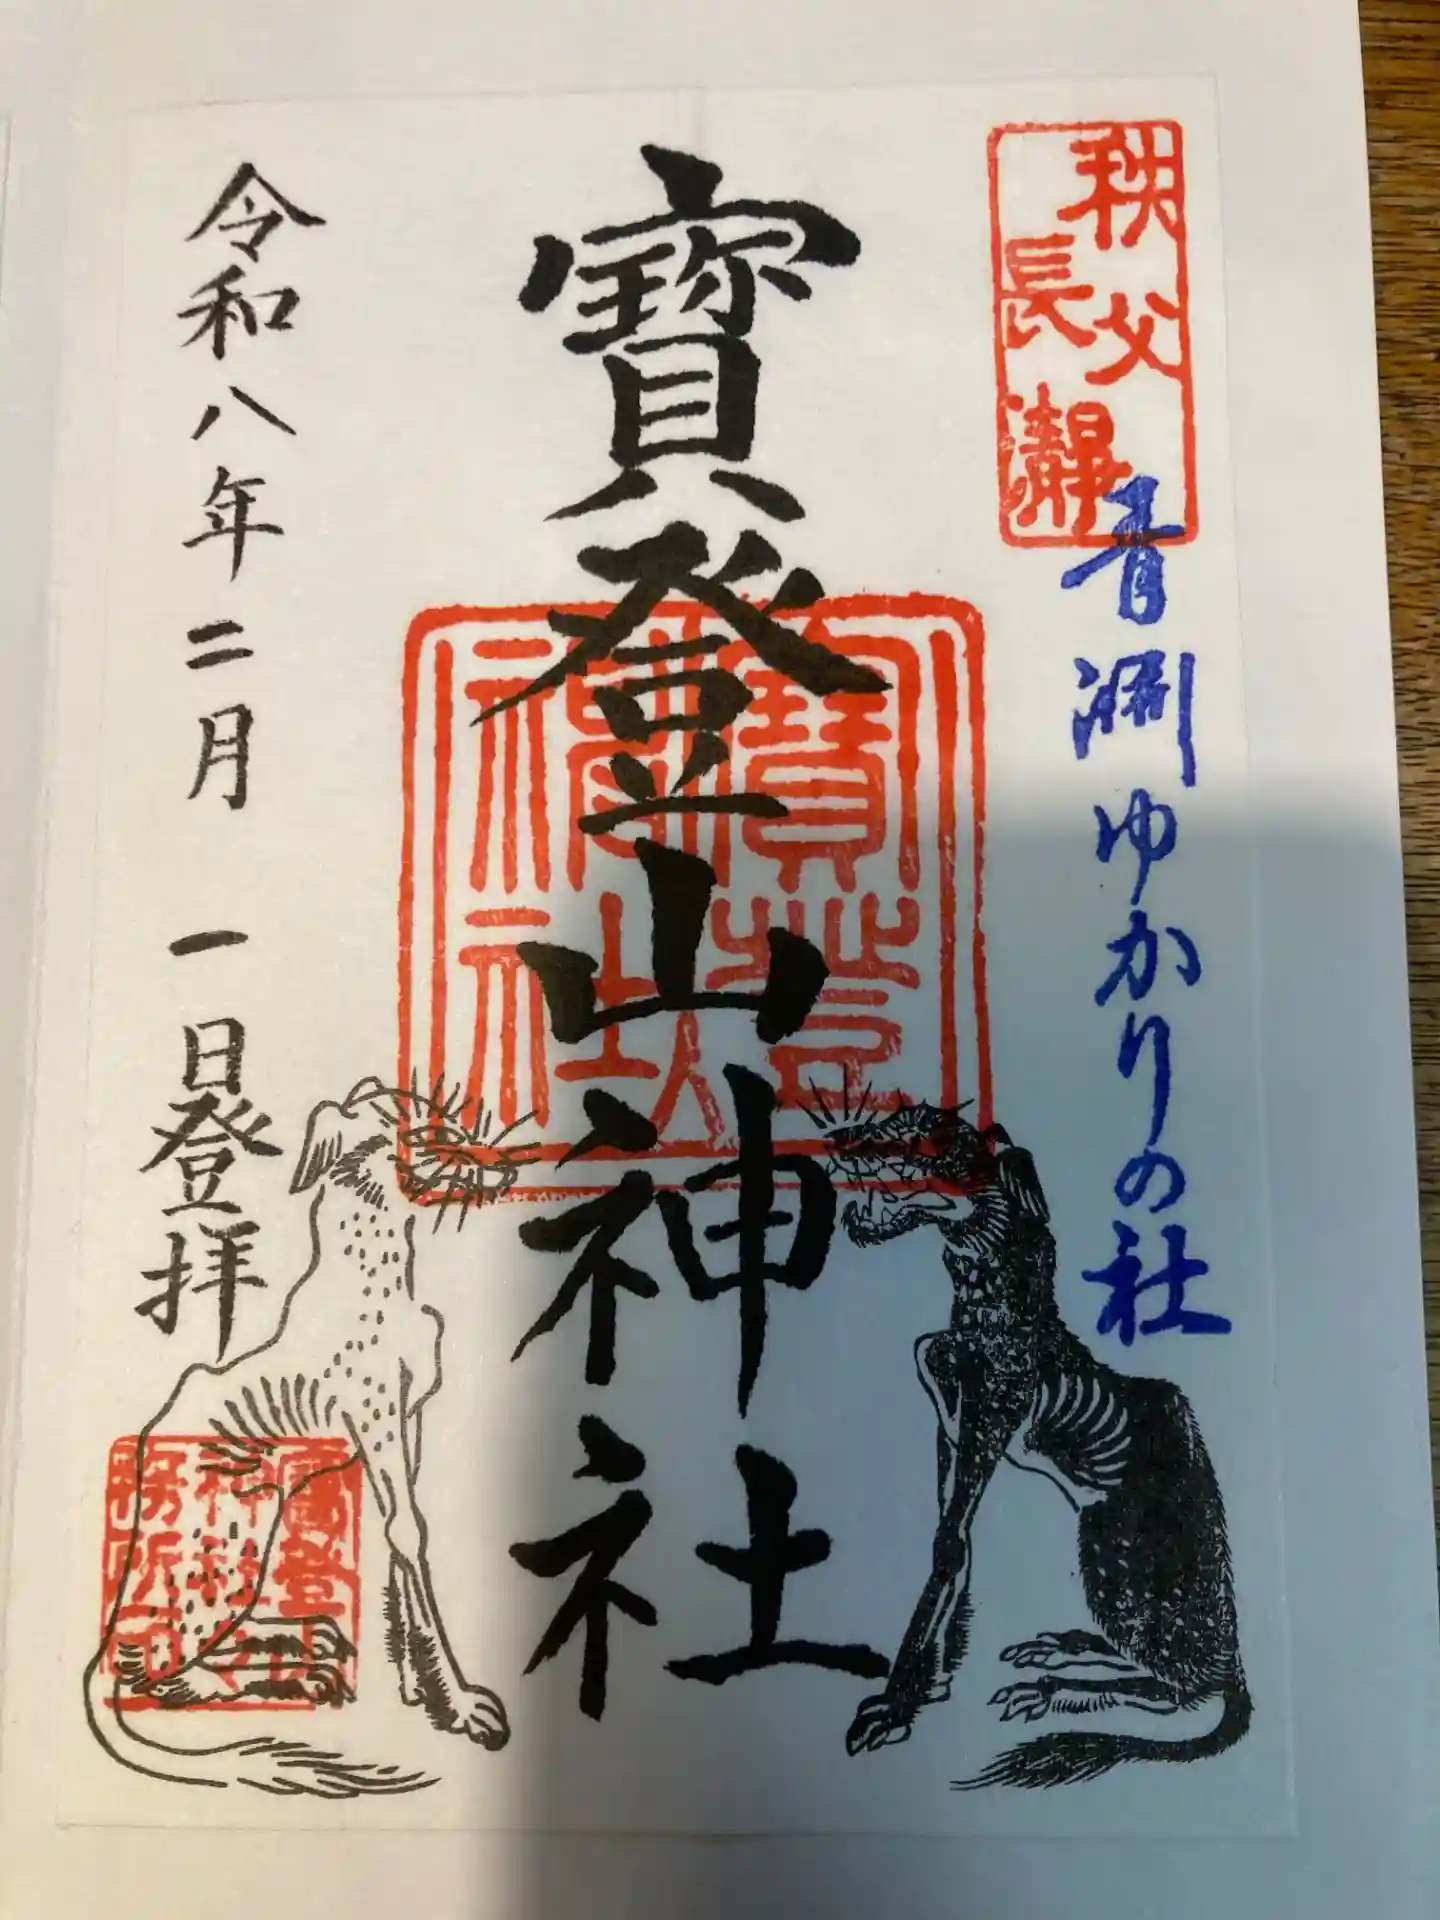 秩父
長瀞
青淵ゆかりの社
寶登山神社
寶登山
神社
令和八年二月 一日登拝
寶登山
神社
務所印